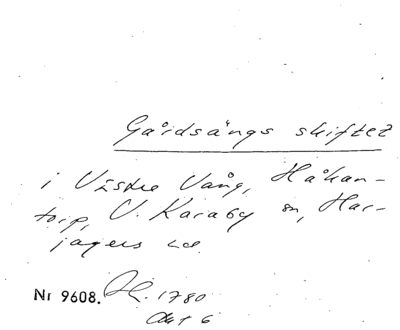 Gårdsängs skiftet
i Västra Vång, Håkan-
torp, V. Karaby sn, Har-
jagers hd.
Nr 9608. 1780
Akt 6